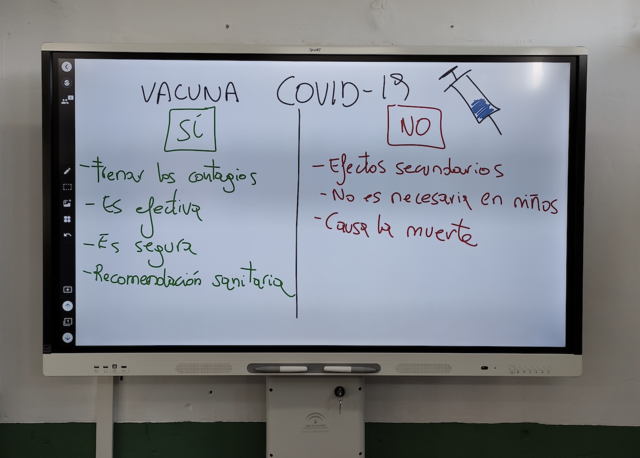 VACUNA COVID-19
SÍ
- Frenar los contagios
- Es efectiva
- Es segura
- Recomendación sanitaria
NO
- Efectos secundarios
- No es necesaria en niños
- Causa la muerte